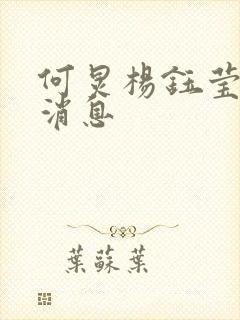 何炅楊鈺瑩
消息
葉蘇葉